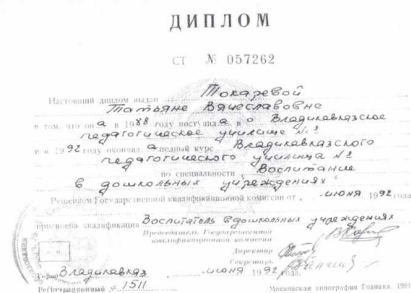 ДИПЛОМ
СТ № 057262
Настоящий диплом выдан Токаревой
Татьяне Вячеславовне
в том, что она в 1988 году поступила в Владикавказское
педагогическое училище №
и в 1992 году окончила полный курс Владикавказского
педагогического училища №
по специальности „Воспитание
в дошкольных учреждениях"
Решением Государственной квалификационной комиссии от июня 1992 года
присвоена квалификация Воспитатель в дошкольных учреждениях
Председатель Государственной
квалификационной комиссии
Директор
Секретарь
Город Владикавказ июня 1992 г.
Регистрационный № 1511
Московская типография Гознака. 1991